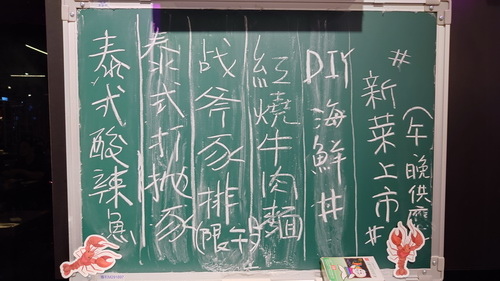 #新菜上市#
(午晚供應
DIY海鮮丼
紅燒牛肉麵
战斧豕排
(限午5)
泰式打抛豕
泰式酸辣魚